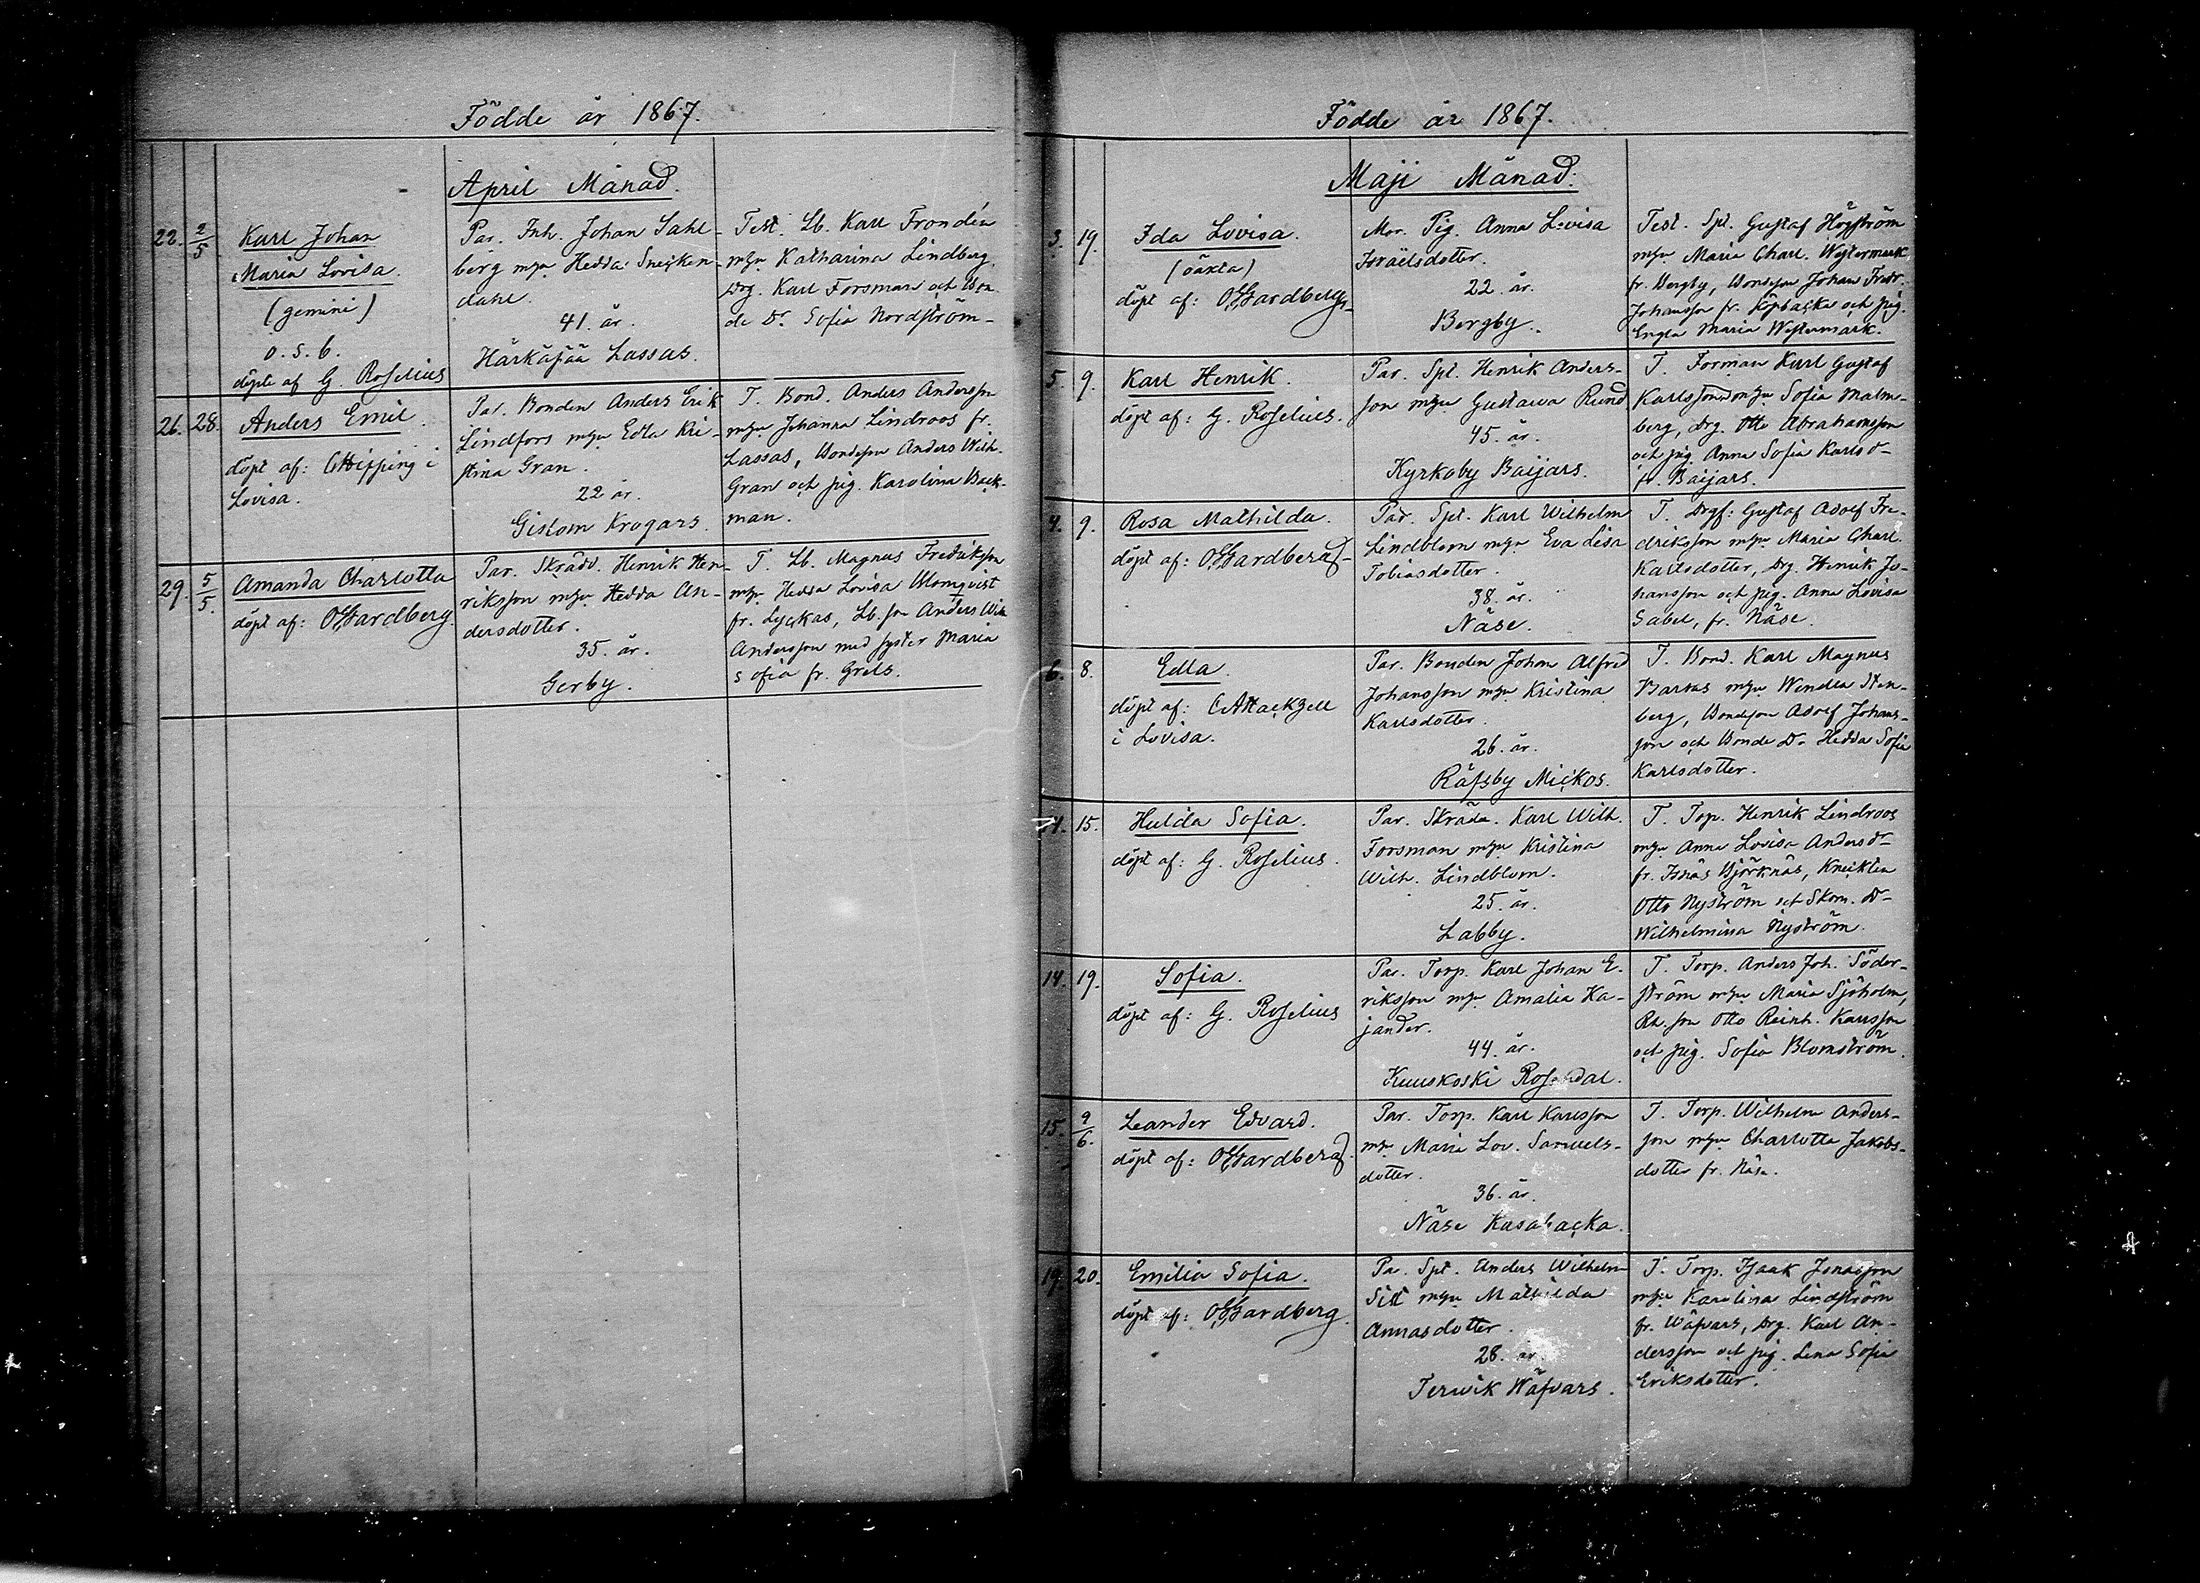 Födde år 1867.
April Månad.
22. 2/5
Karl Johan
Maria Lovisa.
(gemini)
o. s. b.
döpte af G. Roselius
Par. Inh. Johan Sahl-
berg m hu Hedda Sneçken-
dahl.
41. år.
Härkäpää Lassas.
Test. Lb. Karl Frondén
m hu Katharina Lindberg.
Drg. Karl Forsman och Bon-
de Dr. Sofia Nordström-
26. 28.
Anders Emil.
döpt af: Hipping i
Lovisa.
Par. Bonden Anders Erik
Lindfors m hu Edla Kri-
stina Gran.
22 år.
Gislom Krogars.
T. Bond. Anders Andersson
m hu Johanna Lindroos fr.
Lassas, Bondeson Anders Wilh.
Gran och pig. Karolina Back-
man.
29. 5/5.
Amanda Charlotta
döpt af: Gardberg.
Par. Skrädd. Henrik Hen-
riksson m hu Hedda An-
dersdotter.
35. år.
Gerby.
T. Lb. Magnus Fredriksson
m hu Hedda Lovisa Blomqvist
fr. Lyçkas, Lb. son Anders Wilh
Andersson med syster Maria
Sofia fr. Grels.
Födde år 1867.
Maji Månad.
3. 19.
Ida Lovisa.
(oäkta)
döpt af: Gardberg-
Mor. Pig. Anna Lovisa
Israelsdotter.
22. år.
Bergby.
Test. Spt. Gustaf Högström
m hu Maria Charl. Westermark
fr. Bergby, Bondeson Johan Fredr.
Johansson fr. Köpbacka och pig.
Engla Maria Westermark.
5. 9.
Karl Henrik.
döpt af: G. Roselius.
Par. Spt. Henrik Anders-
son m hu Gustava Rund
45. år.
Kyrkoby Baijars.
T. Forman Karl Gustaf
Karlsson m hu Sofia Malm-
berg, Drg. Otto Abrahamsson
och pig. Anna Sofia Karlsd-
fr. Baijars.
4. 9.
Rosa Mathilda.
döpt af: Gardberg-
Par. Spt. Karl Wilhelm
Lindblom m hu Eva Lisa
Tobiasdotter.
38. år.
Näse.
T. Drgf. Gustaf Adolf Fre-
driksson m hu Maria Charl.
Karlsdotter, Drg. Henrik Jo-
hansson och pig. Anna Lovisa
Gabel, fr. Näse.
6. 8.
Edla.
döpt af: Attackzell
i Lovisa.
Par. Bonden Johan Alfred
Johansson m hu Kristina
Karlsdotter.
26. år.
Räfsby Miçkos.
T. Bond. Karl Magnus
Barkas m hu Wendla Sten-
berg, Bondeson Adolf Johans-
son och Bonde D- Hedda Sofia
Karlsdotter.
14. 15.
Hulda Sofia.
döpt af: G. Roselius.
Par. Skräd. Karl Wilh.
Forsman m hu Kristina
Wilh. Lindblom.
25. år.
Labby.
T. Torp. Henrik Lindroos
m hu Anna Lovisa Andersdr
fr. Isnäs Björknäs, Knekten
Otto Nyström och Skom. dr
Wilhelmina Nyström.
14. 19.
Sofia.
döpt af: G. Roselius
Par. Torp. Karl Johan E-
riksson m hu Amalia Ka-
jander.
44. år.
Kuuskoski Rosendal.
T. Torp. Anders Joh. Söder-
ström m hu Maria Sjöholm,
Rh. son Otto Reinh. Karlsson
och pig. Sofia Blomström.
15. 9/6.
Leander Edvard.
döpt af: Gardberg.
Par. Torp. Karl Karlsson
m hu Maria Lov. Samuels-
dotter.
36. år.
Näse Kasabaçka.
T. Torp. Wilhelm Anders-
son m hu Charlotta Jakobs-
dotter fr. Näse.
19. 20.
Emilia Sofia.
döpt af: Gardberg.
Par. Spt. Anders Wilhelm
Sitt m hu Mathilda
Annasdotter.
28. år
Terwik Wäfvars.
T. Torp. Isaak Jonasson
m hu Karolina Lindström
fr. Wäfvars, Drg. Karl An-
dersson och pig. Lena Sofia
Eriksdotter.